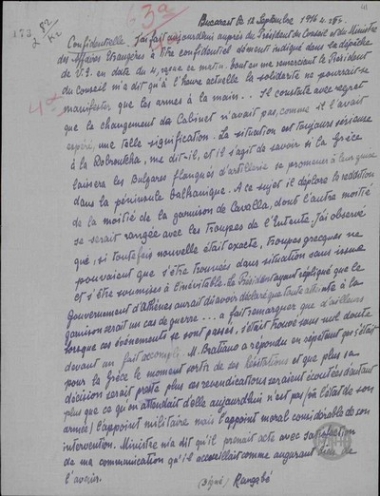 Bucarest le 12 Septembre 1916 No 285.
Confidentielle. J'ai fait aujourd'hui auprès du Président du Conseil et du Ministre
des Affaires Etrangères à titre confidentiel démenti indiqué dans sa dépêche
de V.E. en date du 4, reçue ce matin. tout en me remerciant le Président
du Conseil m'a dit qu'à l'heure actuelle la solidarité ne pourrait se
manifester que les armes à la main... Il constate avec regret
que le changement de Cabinet n'avait pas, comme il l'avait
espéré, une telle signification. La situation est toujours sérieuse
à la Dobroudja, me dit-il, et il s'agit de savoir si la Grèce
laissera les Bulgares flanqués d'artillerie se promener à leur guise
dans la péninsule balkanique. A ce sujet il déplore la reddition
de la moitié de la garnison de Cavalla, dont l'autre moitié
se serait rangée avec les troupes de l'Entente. J'ai observé
que, si toutefois nouvelle était exacte, troupes grecques ne
pouvaient que s'être trouvées dans situation sans issue
et s'être soumises à l'inévitable. Le Président ayant répliqué que le
Gouvernement d'Athènes aurait dû avoir déclaré que toute atteinte à la
garnison serait un cas de guerre... a fait remarquer que d'ailleurs
lorsque ces événements se sont passés, s'était trouvé sans nul doute
devant un fait accompli. M. Bratiano a répondu en répétant que c'était
pour la Grèce le moment sortir de ses hésitations et que plus sa
décision serait prête plus ses revendications seraient écoutées d'autant
plus que ce qu'on attendait d'elle aujourd'hui n'est pas (en l'état de son
armée) l'appoint militaire mais l'appoint moral considérable de son
intervention. Ministre m'a dit qu'il prenait acte avec satisfaction
de ma communication qu'il accueillait comme augurant
l'avenir.
(Signé) Rangabé